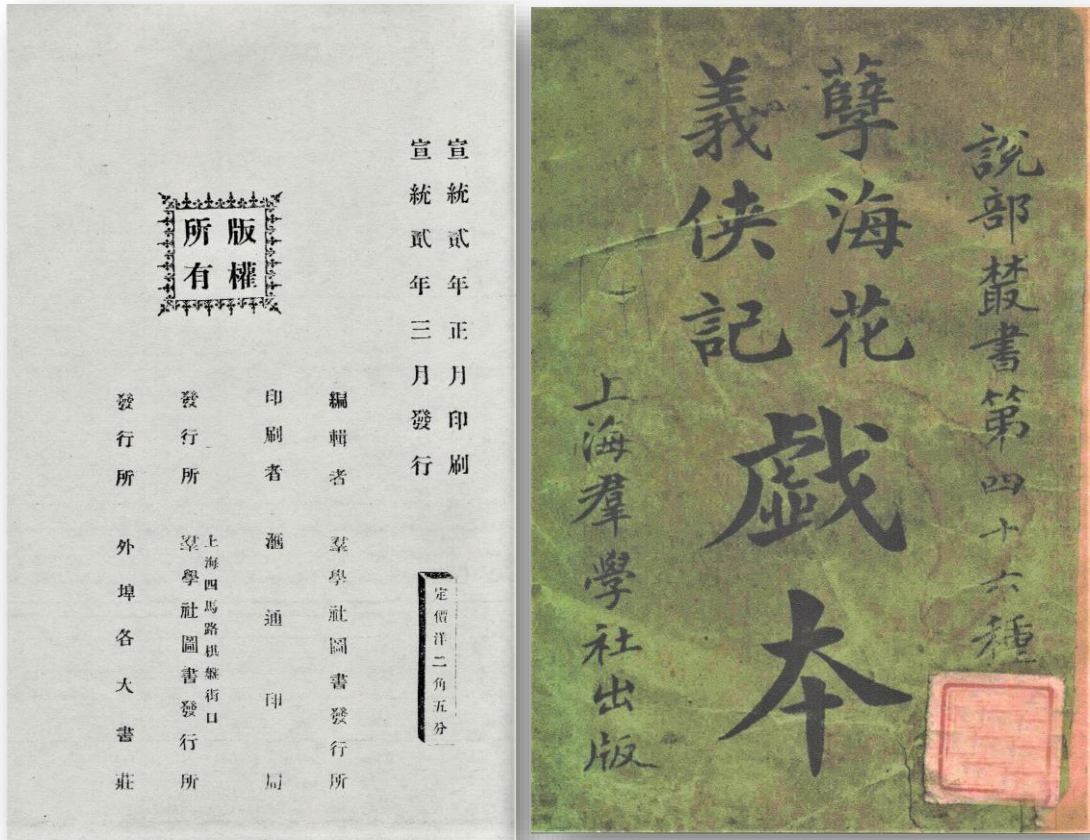 宣統貳年正月印刷
宣統貳年三月發行
版權
所有
編輯者 羣學社圖書發行所
印刷者 滙通印局
發行所 上海四馬路棋盤街口
羣學社圖書發行所
發行所 外埠各大書莊
定價洋二角五分
說部叢書第四十六種
孽海花
義俠記
戯本
上海羣學社出版